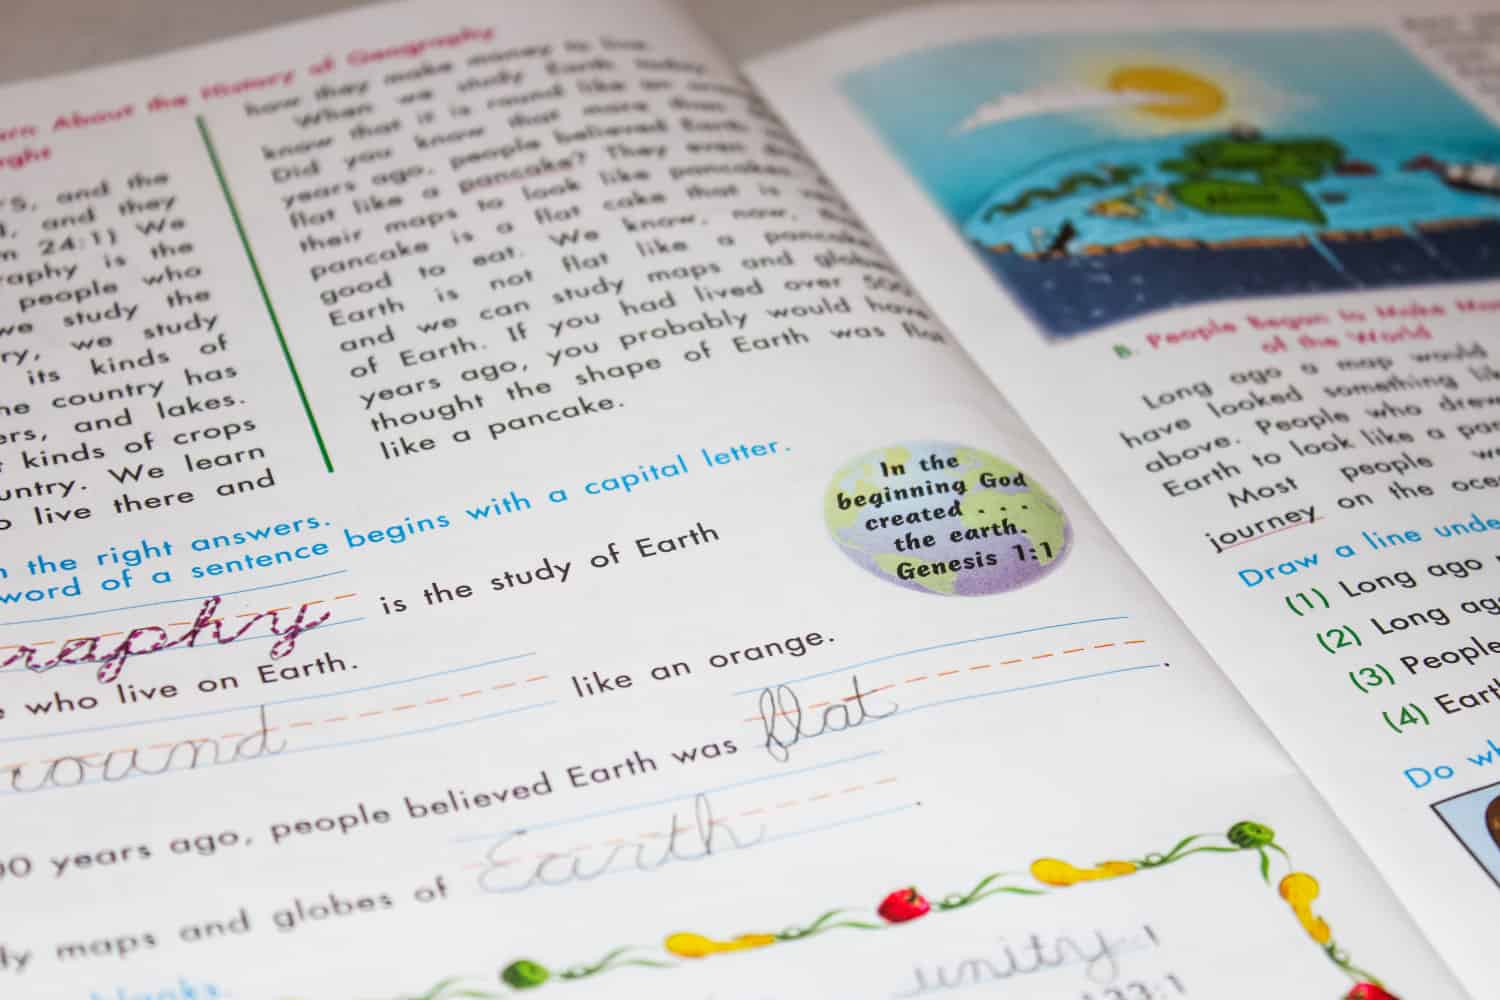 About the History of Geography
'S, and the
and they
24:1) We
raphy is the
people who
we study the
ry, we study
its kinds of
he country has
ers, and lakes.
kinds of crops
untry. We learn
live there and
how they make money to live.
When we study Earth today,
know that it is round like an
Did you know that more than
years ago, people believed Earth
flat like a pancake? They even
their maps to look like pancakes.
pancake is a flat cake that is
good to eat. We know, now,
Earth is not flat like a pancake
and we can study maps and globes
of Earth. If you had lived over 500
years ago, you probably would have
thought the shape of Earth was flat
like a pancake.
the right answers.
word of a sentence begins with a capital letter.
raphy is the study of Earth
who live on Earth.
round like an orange.
00 years ago, people believed Earth was flat.
ly maps and globes of Earth.
blanks.
unity!
133:1
In the
beginning God
created . . .
the earth.
Genesis 1:1
B. People Began to Make
of the World
Long ago a map would
have looked something
above. People who drew
Earth to look like a
Most people
journey on the
Draw a line
(1) Long ago
(2) Long
(3) People
(4)
Do